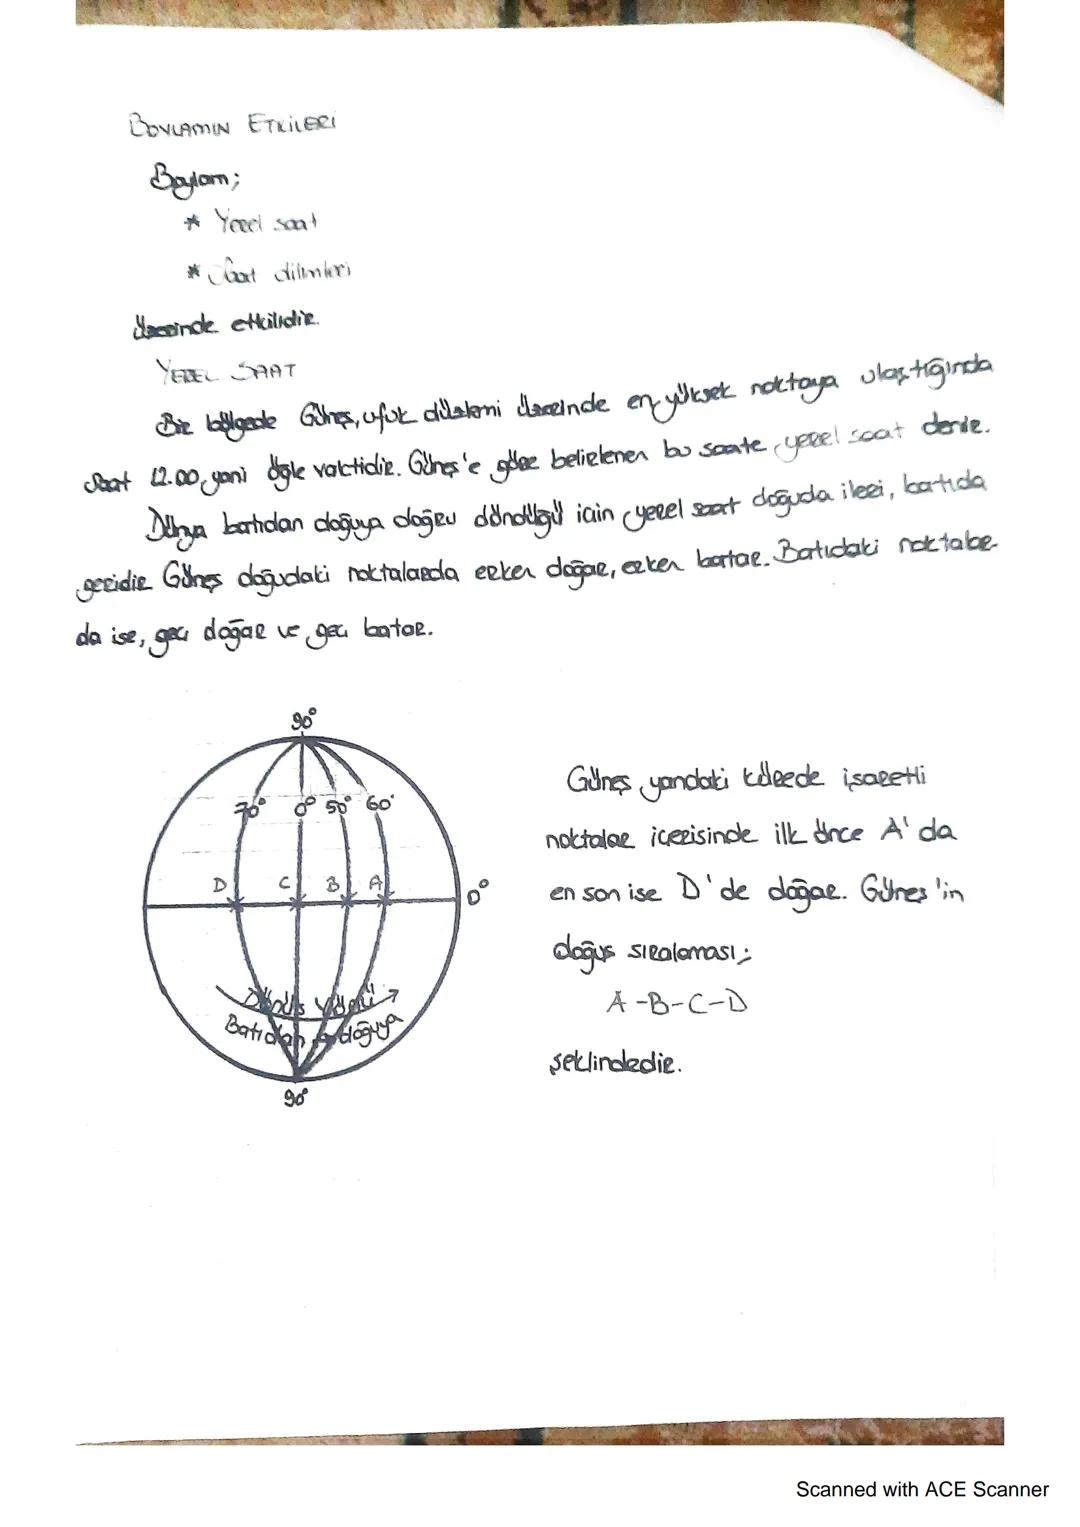 BOYLAMIN ETKİLERİ
Boylam;
* Yerel saat
* Saat dilimleri
Üzerinde etkilidir.
YEREL SAAT
Bir bölgede Güneş, ufuk düzlemi üzerinde en yüksek noktaya ulaştığında
Saat 12.00, yani öğle vaktidir. Güneş'e göre belirlenen bu saate yerel saat denir.
Dünya batıdan doğuya doğru döndüğü için yerel saat doğuda ileri, batıda
geridir. Güneş doğudaki noktalarda erken doğar, erken batar. Batıdaki noktalar-
da ise, geç doğar ve geç batar.
90°
70° 0° 50° 60°
D C B A
0°
Dönüş Yönü
Batıdan doğuya
90°
Güneş yandaki kürede işaretli
noktalar içerisinde ilk önce A'da
en son ise D'de doğar. Güneş'in
doğuş sıralaması;
A-B-C-D
şeklindedir.
Scanned with ACE Scanner